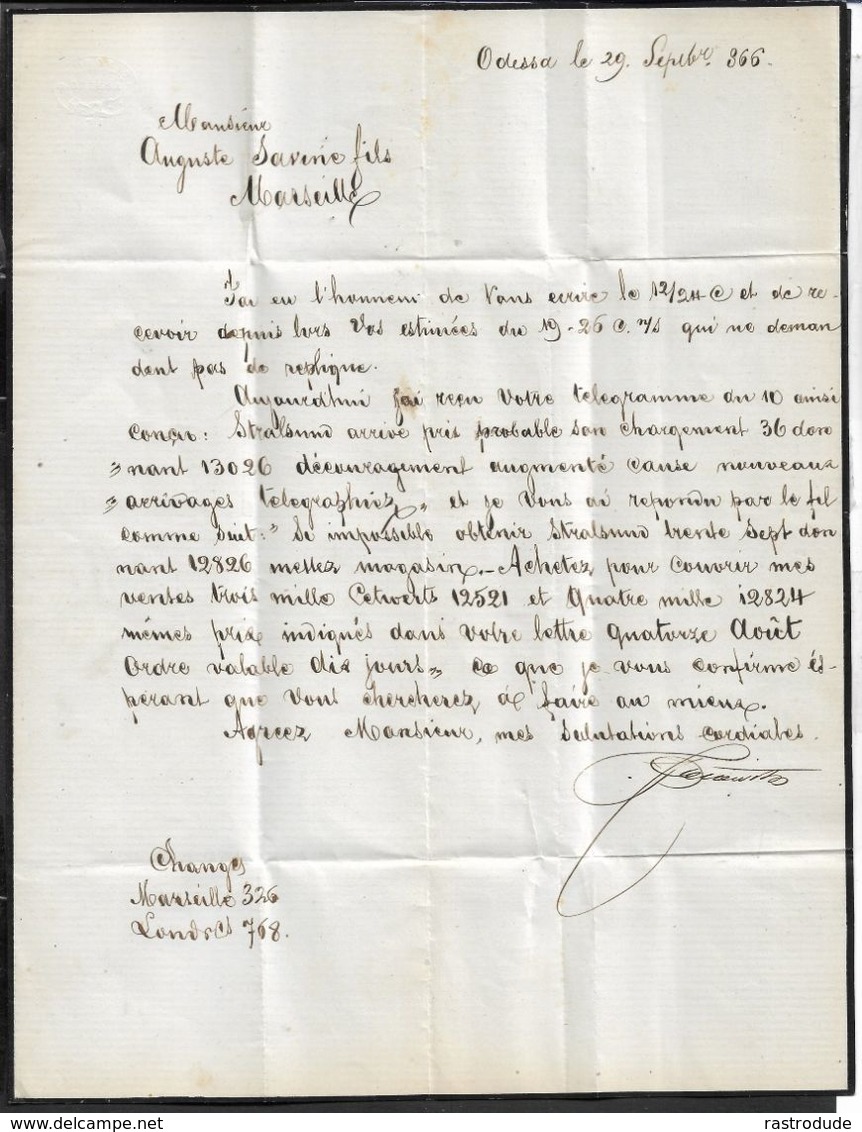 Odessa le 29. Septbr. 866.
Monsieur
Auguste Savine fils
Marseille
J'ai eu l'honneur de Vous ecrire le 12/24 C et de re-
cevoir depuis lors Vos estimées du 19-26 C. n/s qui ne deman
dent pas de replique.
Aujourd'hui j'ai reçu Votre telegramme du 10 ainsi
conçu: Stralsund arrivé pris probable son chargement 36 don
"nant 13026 découragement augmenté cause nouveaux
"arrivages telegraphiez" et je Vous ai repondu par le fil
comme suit: "Si impossible obtenir Stralsund trente Sept don
nant 12826 mettez magasin.- Achetez pour couvrir mes
ventes trois mille Cetwerts 12521 et Quatre mille 12824
mêmes prix indiqués dans Votre lettre quatorze Août
Ordre valable dix jours" ce que je vous confirme és-
pérant que Vous chercherez à faire au mieux.
Agreez Monsieur, mes Salutations cordiales.
Changes
Marseille 326
Londres 768.
rastrodude